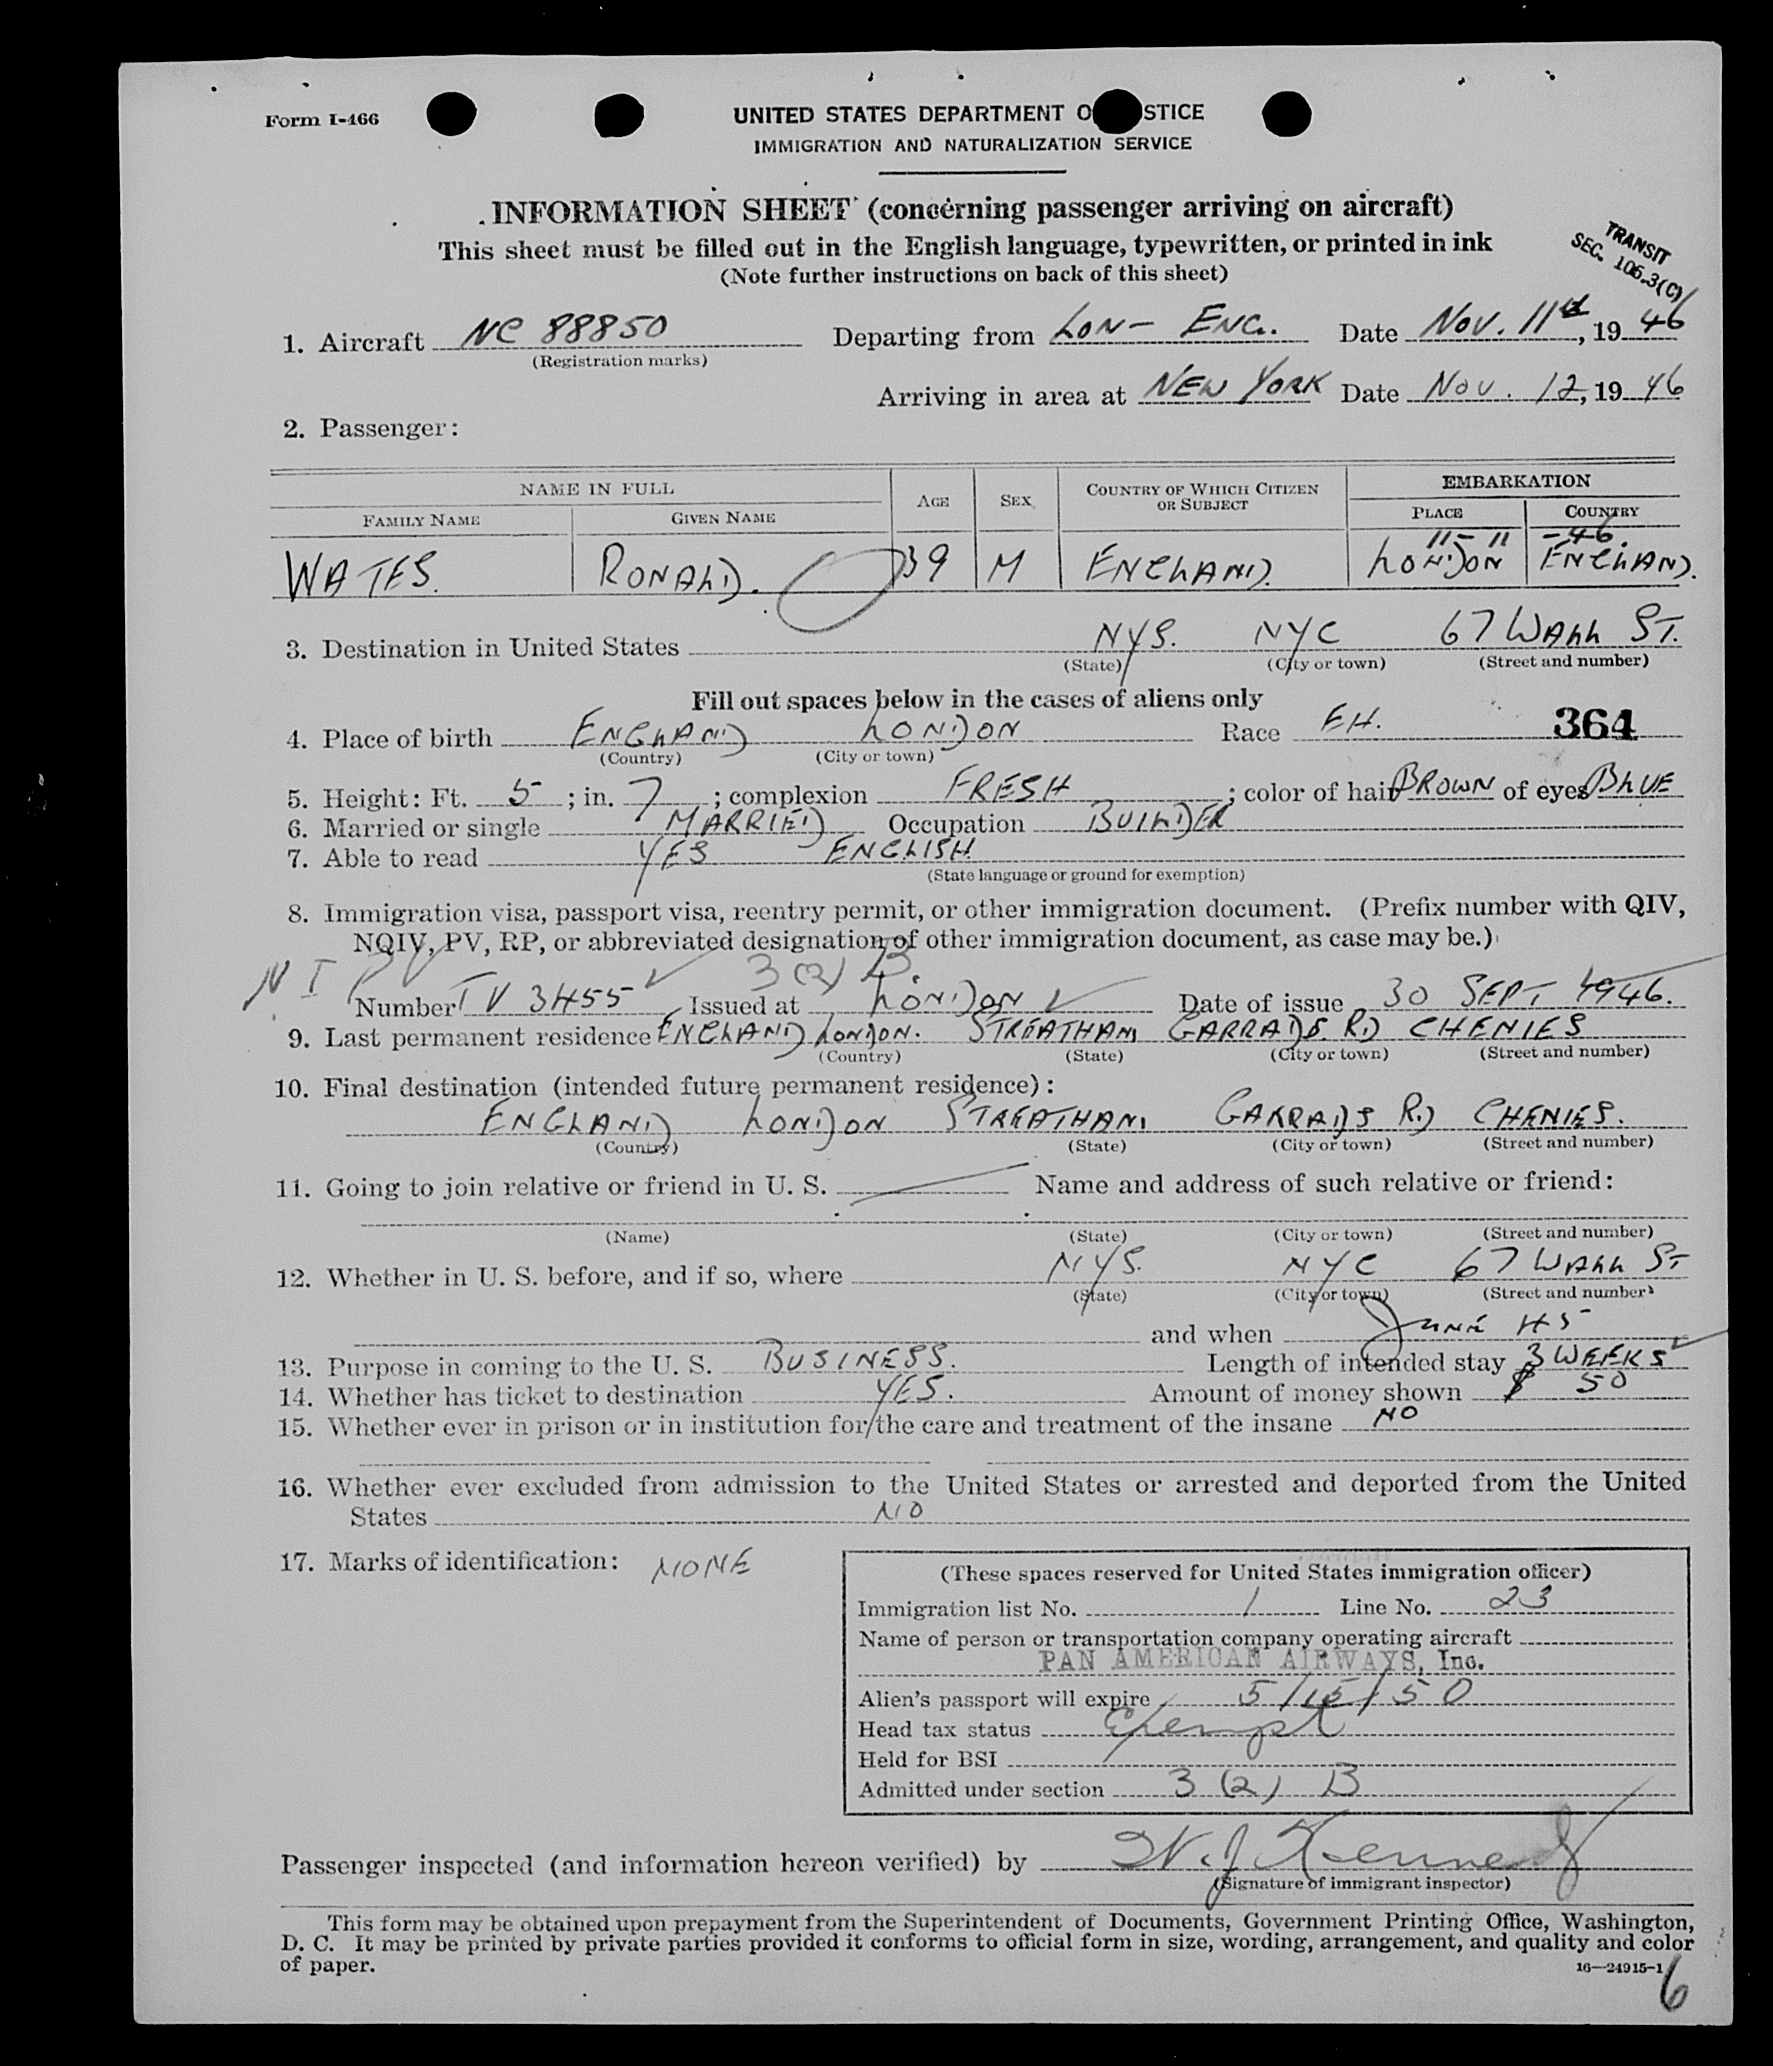 Form I-466
UNITED STATES DEPARTMENT O STICE
IMMIGRATION AND NATURALIZATION SERVICE
INFORMATION SHEET (concerning passenger arriving on aircraft)
This sheet must be filled out in the English language, typewritten, or printed in ink
(Note further instructions on back of this sheet)
TRANSIT
SEC. 106.3(C)
1. Aircraft NC 88850 Departing from LON- ENG. Date Nov. 11th, 1946
(Registration marks)
Arriving in area at NEW YORK Date Nov. 12, 1946
2. Passenger:
NAME IN FULL AGE SEX COUNTRY OF WHICH CITIZEN OR SUBJECT EMBARKATION
FAMILY NAME GIVEN NAME PLACE COUNTRY
11-11-46.
WATES. RONALD. 39 M ENGLAND. LONDON ENGLAND.
3. Destination in United States NYS. NYC 67 WALL ST.
(State) (City or town) (Street and number)
Fill out spaces below in the cases of aliens only
4. Place of birth ENGLAND LONDON Race 364
(Country) (City or town)
5. Height: Ft. 5 ; in. 7 ; complexion FRESH ; color of hair BROWN of eyes BLUE
6. Married or single MARRIED Occupation BUILDER
7. Able to read YES ENGLISH
(State language or ground for exemption)
8. Immigration visa, passport visa, reentry permit, or other immigration document. (Prefix number with QIV,
NQIV, PV, RP, or abbreviated designation of other immigration document, as case may be.)
N I P V 3 (2) B
Number TV 3455 Issued at LONDON Date of issue 30 SEPT 1946.
9. Last permanent residence ENGLAND LONDON. STREATHAM GARRADS. RD CHENIES
(Country) (State) (City or town) (Street and number)
10. Final destination (intended future permanent residence):
ENGLAND LONDON STREATHAM GARRADS RD CHENIES.
(Country) (State) (City or town) (Street and number)
11. Going to join relative or friend in U. S. Name and address of such relative or friend:
(Name) (State) (City or town) (Street and number)
12. Whether in U. S. before, and if so, where NYS. NYC 67 WALL ST
(State) (City or town) (Street and number)
and when JUNE 45
13. Purpose in coming to the U. S. BUSINESS. Length of intended stay 3 WEEKS
14. Whether has ticket to destination YES. Amount of money shown $ 50
15. Whether ever in prison or in institution for the care and treatment of the insane NO
16. Whether ever excluded from admission to the United States or arrested and deported from the United
States NO
17. Marks of identification: NONE
(These spaces reserved for United States immigration officer)
Immigration list No. 1 Line No. 23
Name of person or transportation company operating aircraft
PAN AMERICAN AIRWAYS, Inc.
Alien's passport will expire 5/15/50
Head tax status Exempt
Held for BSI
Admitted under section 3 (2) B
Passenger inspected (and information hereon verified) by W. J. Kennedy
(Signature of immigrant inspector)
This form may be obtained upon prepayment from the Superintendent of Documents, Government Printing Office, Washington,
D. C. It may be printed by private parties provided it conforms to official form in size, wording, arrangement, and quality and color
of paper.
16—24915-1
6